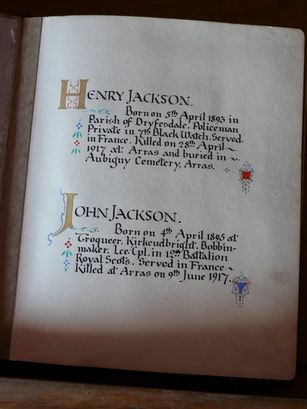 HENRY JACKSON.
Born on 5th April 1893 in
Parish of Dryfesdale. Policeman
Private in 7th Black Watch. Served
in France. Killed on 28th April
1917 at Arras and buried in
Aubigny Cemetery, Arras.
JOHN JACKSON.
Born on 4th April 1895 at
Troqueer, Kirkcudbright. Bobbin-
maker. Lce. Cpl. in 12th Battalion
Royal Scots. Served in France
Killed at Arras on 9th June 1917.